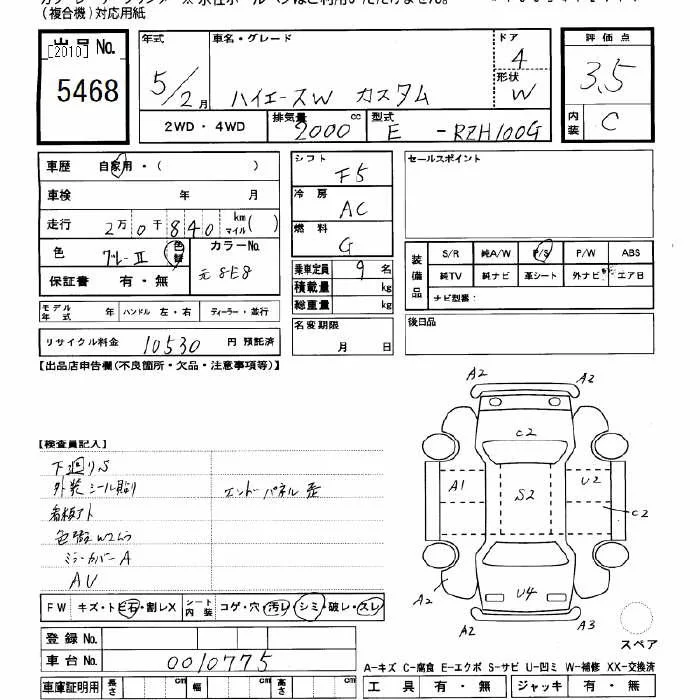 (複合機)対応用紙
出品 No.
[2010]
5468
年式
5/2月
車名・グレード
ハイエースW カスタム
ドア
4
形状
W
評価点
3.5
内装
C
2WD・4WD
排気量
2000 cc
型式
E -RZH100G
車歴 自家用・( )
車検 年 月
走行 2万0千840 km マイル( )
色 グレーⅡ 色替
カラーNo.
元 8E8
保証書 有・無
モデル年式 年 ハンドル 左・右 ディーラー・並行
リサイクル料金 10530 円 預託済
シフト
F5
冷房
AC
燃料
G
乗車定員 9 名
積載量 kg
総重量 kg
名変期限
月 日
セールスポイント
装備品
S/R 純A/W P/S P/W ABS
純TV 純ナビ 革シート 外ナビ エア日
ナビ型番:
後日品
【出品店申告欄(不良箇所・欠品・注意事項等)】
【検査員記入】
下廻りS
外装シール貼り
エンドーパネル歪
看板アト
ミラーカバーA
AU
FW キズ・トビ石・割レX シート内装 コゲ・穴・汚レ・シミ・破レ・スレ
登録 No.
車台 No. 0010775
車庫証明用 長さ cm 幅 cm 高さ cm
A2 A2
C2
A1 S2 U2
C2
U4
A2 A2 A3
スペア
A-キズ C-腐食 E-エクボ S-サビ U-凹ミ W-補修 XX-交換済
工具 有・無 ジャッキ 有・無